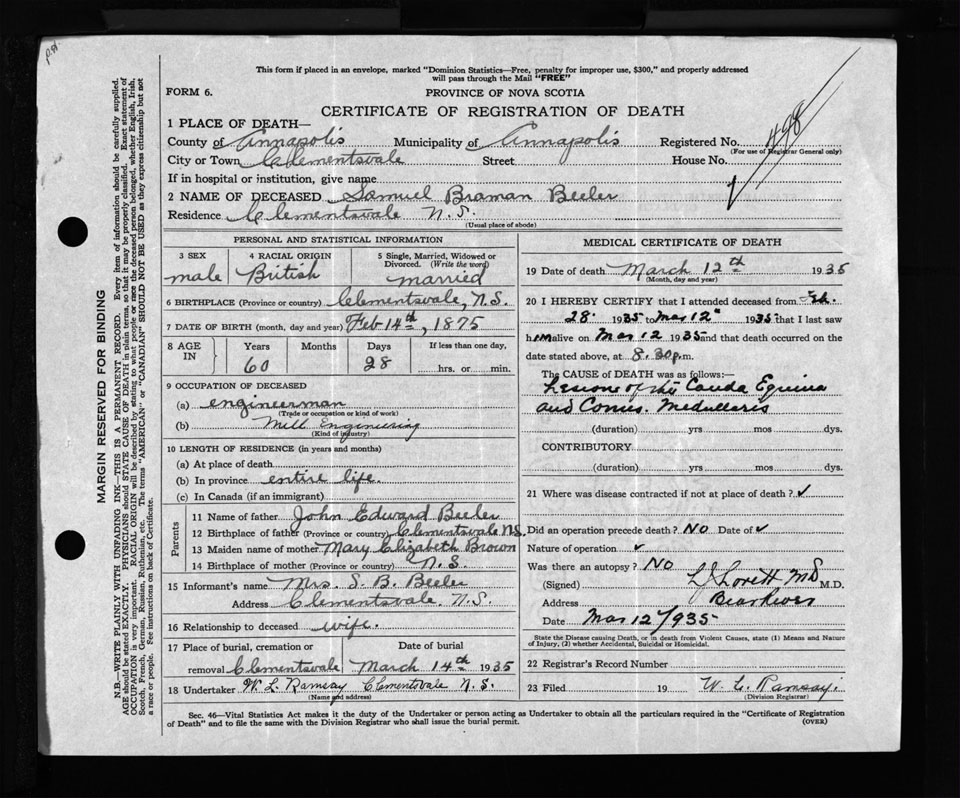 This form if placed in an envelope, marked "Dominion Statistics—Free, penalty for improper use, $300," and properly addressed
will pass through the Mail "FREE"
FORM 6.
PROVINCE OF NOVA SCOTIA
CERTIFICATE OF REGISTRATION OF DEATH
1 PLACE OF DEATH—
County of Annapolis Municipality of Annapolis Registered No. 498
(For use of Registrar General only)
City or Town Clementsvale Street House No.
If in hospital or institution, give name
2 NAME OF DECEASED Samuel Braman Beeler
Residence Clementsvale N.S.
(Usual place of abode)
PERSONAL AND STATISTICAL INFORMATION
3 SEX male
4 RACIAL ORIGIN British
5 Single, Married, Widowed or Divorced. (Write the word) married
6 BIRTHPLACE (Province or country) Clementsvale, N.S.
7 DATE OF BIRTH (month, day and year) Feb 14th, 1875
8 AGE IN Years 60 Months Days 28 If less than one day, hrs. or min.
9 OCCUPATION OF DECEASED
(a) engineerman
(Trade or occupation or kind of work)
(b) Mill Engineering
(Kind of industry)
10 LENGTH OF RESIDENCE (in years and months)
(a) At place of death
(b) In province entire life.
(c) In Canada (if an immigrant)
Parents
11 Name of father John Edward Beeler
12 Birthplace of father (Province or country) Clementsvale N.S.
13 Maiden name of mother Mary Elizabeth Brown
14 Birthplace of mother (Province or country) N.S.
15 Informant's name Mrs. S. B. Beeler
Address Clementsvale. N.S.
16 Relationship to deceased wife.
17 Place of burial, cremation or removal Clementsvale Date of burial March 14th 1935
18 Undertaker W. L. Ramsay Clementsvale N.S.
(Name and address)
MEDICAL CERTIFICATE OF DEATH
19 Date of death March 12th 1935
(Month, day and year)
20 I HEREBY CERTIFY that I attended deceased from Feb.
28 1935 to Mar 12 1935 that I last saw
him alive on Mar 12 1935 and that death occurred on the
date stated above, at 8.30 p.m.
The CAUSE OF DEATH was as follows:
Lesions of the Cauda Equina
and Conus. Medullaris
(duration) yrs mos dys.
CONTRIBUTORY
(duration) yrs mos dys.
21 Where was disease contracted if not at place of death? ✓
Did an operation precede death? No Date of ✓
Nature of operation ✓
Was there an autopsy? No
(Signed) Lovett MD M.D.
Address Bear River
Mar 12/935
State the Disease causing Death, or in death from Violent Causes, state (1) Means and Nature
of Injury, (2) whether Accidental, Suicidal or Homicidal.
22 Registrar's Record Number
23 Filed 19 W. L. Ramsay.
(Division Registrar)
Sec. 46—Vital Statistics Act makes it the duty of the Undertaker or person acting as Undertaker to obtain all the particulars required in the "Certificate of Registration
of Death" and to file the same with the Division Registrar who shall issue the burial permit.
(OVER)
MARGIN RESERVED FOR BINDING
N.B.—WRITE PLAINLY WITH UNFADING INK—THIS IS A PERMANENT RECORD. Every item of information should be carefully supplied.
AGE should be stated EXACTLY. PHYSICIANS should STATE CAUSE OF DEATH in plain terms, so that it may be properly classified. Exact statement of
OCCUPATION is very important. RACIAL ORIGIN will be described by stating to what people or race the deceased person belonged, whether English, Irish,
Scotch, French, German, Russian, Ruthenian, etc. The terms "AMERICAN" or "CANADIAN" SHOULD NOT BE USED as they express citizenship but not
a race or people. See instructions on back of Certificate.